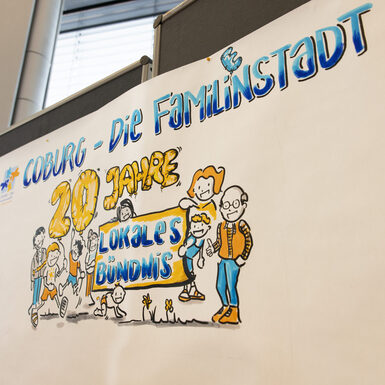 COBURG - DiE FAMiLiNSTADT
20 JAHRE
LOKALES
BÜNDNiS